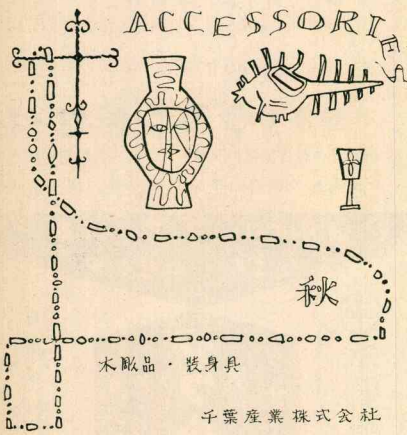 ACCESSORIES
秋
木彫品・装身具
千葉産業株式会社